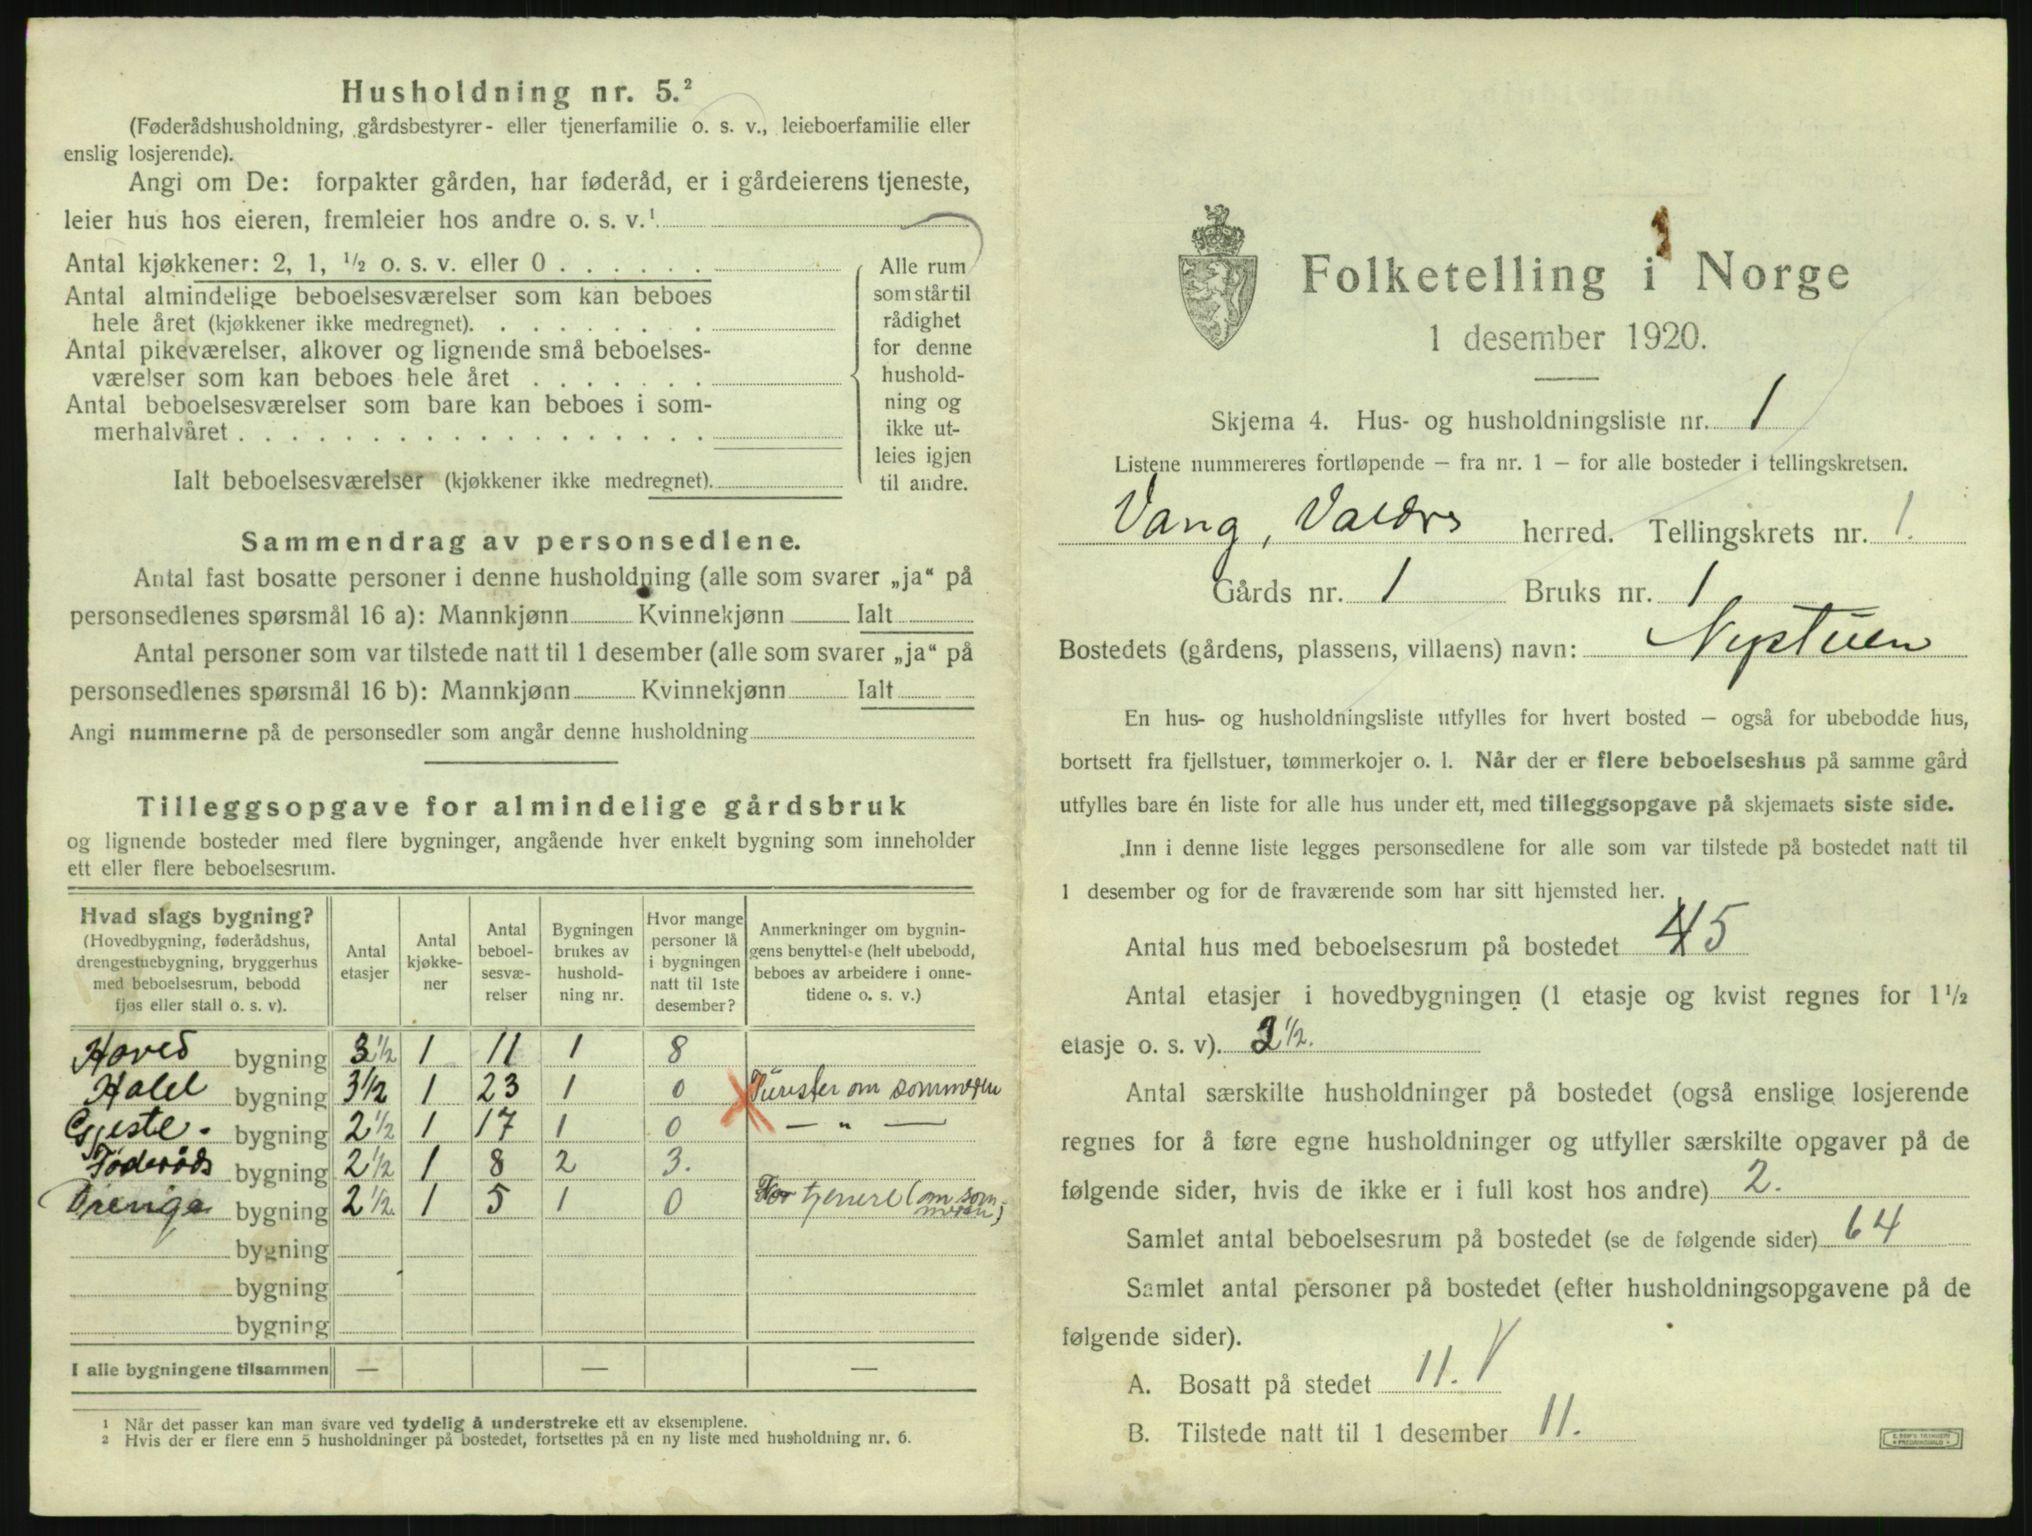 Husholdning nr. 5.²
(Føderådshusholdning, gårdsbestyrer- eller tjenerfamilie o. s. v., leieboerfamilie eller
enslig losjerende).
Angi om De: forpakter gården, har føderåd, er i gårdeierens tjeneste,
leier hus hos eieren, fremleier hos andre o. s. v.¹
Antal kjøkkener: 2, 1, ½ o. s. v. eller 0 . . . . . .
Antal almindelige beboelsesværelser som kan beboes
hele året (kjøkkener ikke medregnet). . . . . . . . .
Antal pikeværelser, alkover og lignende små beboelses-
værelser som kan beboes hele året . . . . . . .
Antal beboelsesværelser som bare kan beboes i som-
merhalvåret . . . . . . . . . . . . . . . . . .
Ialt beboelsesværelser (kjøkkener ikke medregnet).
Alle rum
som står til
rådighet
for denne
hushold-
ning og
ikke ut-
leies igjen
til andre.
Sammendrag av personsedlene.
Antal fast bosatte personer i denne husholdning (alle som svarer „ja“ på
personsedlenes spørsmål 16 a): Mannkjønn Kvinnekjønn Ialt
Antal personer som var tilstede natt til 1 desember (alle som svarer „ja“ på
personsedlenes spørsmål 16 b): Mannkjønn Kvinnekjønn Ialt
Angi nummerne på de personsedler som angår denne husholdning
Tilleggsopgave for almindelige gårdsbruk
og lignende bosteder med flere bygninger, angående hver enkelt bygning som inneholder
ett eller flere beboelsesrum.
Hvad slags bygning?
(Hovedbygning, føderådshus,
drengestuebygning, bryggerhus
med beboelsesrum, bebodd
fjøs eller stall o. s. v).
Antal
etasjer
Antal
kjøkke-
ner
Antal
beboel-
sesvæ-
relser
Bygningen
brukes av
hushold-
ning nr.
Hvor mange
personer lå
i bygningen
natt til 1ste
desember?
Anmerkninger om bygnin-
gens benyttelse (helt ubebodd,
beboes av arbeidere i onne-
tidene o. s. v.)
Hoved bygning 3½ 1 11 1 8
Hotel bygning 3½ 1 23 1 0 Turister om sommeren
Gjeste- bygning 2½ 1 17 1 0 — „ —
Føderåds bygning 2½ 1 8 2 3.
Drenge bygning 2½. 1 5 1 0 For tjenere (om som-
meren)
bygning
bygning
bygning
I alle bygningene tilsammen — — —
¹ Når det passer kan man svare ved tydelig å understreke ett av eksemplene.
² Hvis der er flere enn 5 husholdninger på bostedet, fortsettes på en ny liste med husholdning nr. 6.
Folketelling i Norge
1 desember 1920.
Skjema 4. Hus- og husholdningsliste nr. 1
Listene nummereres fortløpende – fra nr. 1 – for alle bosteder i tellingskretsen.
Vang, Valdres herred. Tellingskrets nr. 1.
Gårds nr. 1 Bruks nr. 1
Bostedets (gårdens, plassens, villaens) navn: Nystuen
En hus- og husholdningsliste utfylles for hvert bosted – også for ubebodde hus,
bortsett fra fjellstuer, tømmerkojer o. l. Når der er flere beboelseshus på samme gård
utfylles bare én liste for alle hus under ett, med tilleggsopgave på skjemaets siste side.
Inn i denne liste legges personsedlene for alle som var tilstede på bostedet natt til
1 desember og for de fraværende som har sitt hjemsted her.
Antal hus med beboelsesrum på bostedet 5
Antal etasjer i hovedbygningen (1 etasje og kvist regnes for 1½
etasje o. s. v). 3½.
Antal særskilte husholdninger på bostedet (også enslige losjerende
regnes for å føre egne husholdninger og utfyller særskilte opgaver på de
følgende sider, hvis de ikke er i full kost hos andre) 2.
Samlet antal beboelsesrum på bostedet (se de følgende sider) 64
Samlet antal personer på bostedet (efter husholdningsopgavene på de
følgende sider).
A. Bosatt på stedet 11.
B. Tilstede natt til 1 desember 11.